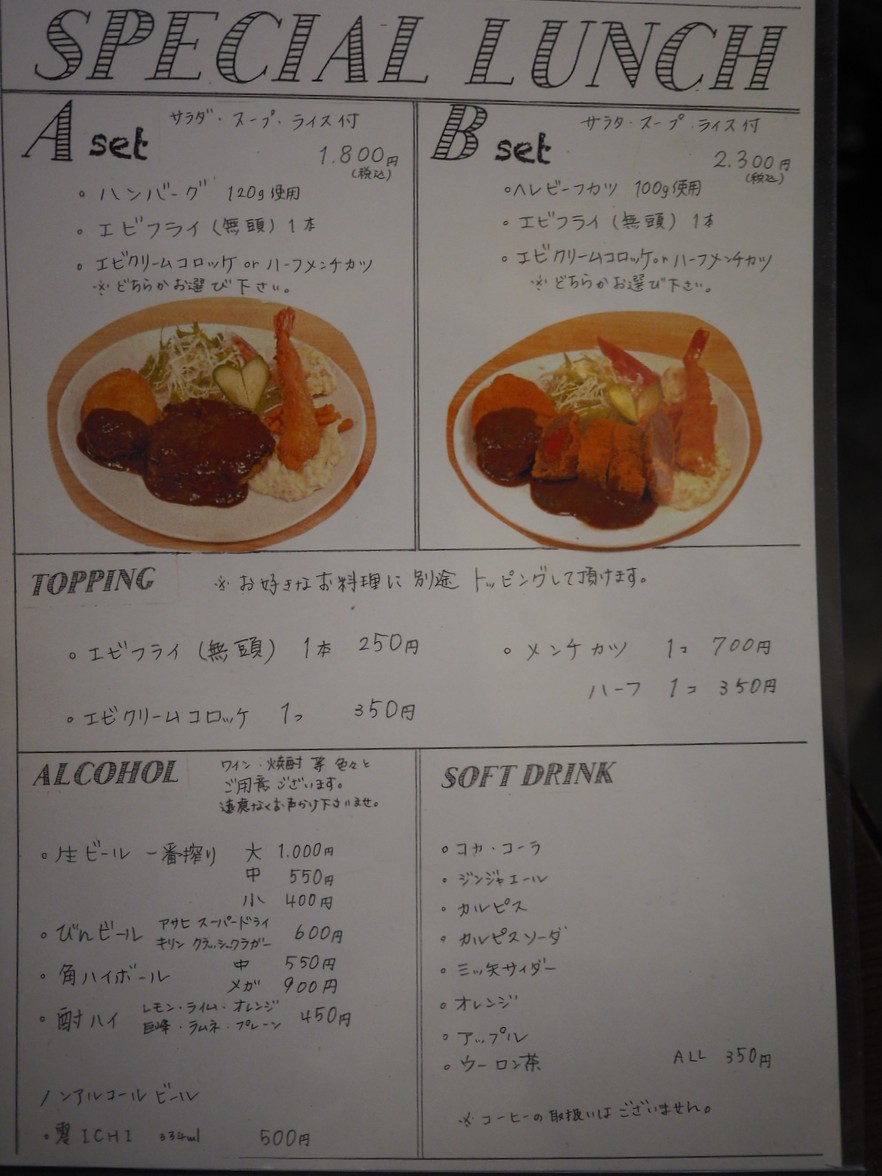 SPECIAL LUNCH
A set サラダ・スープ・ライス付
1.800円
(税込)
・ハンバーグ 120g使用
・エビフライ(無頭) 1本
・エビクリームコロッケ or ハーフメンチカツ
※どちらかお選び下さい。
B set サラダ・スープ・ライス付
2.300円
(税込)
・ヘレビーフカツ 100g使用
・エビフライ(無頭) 1本
・エビクリームコロッケ or ハーフメンチカツ
※どちらかお選び下さい。
TOPPING ※お好きなお料理に別途トッピングして頂けます。
・エビフライ(無頭) 1本 250円
・エビクリームコロッケ 1コ 350円
・メンチカツ 1コ 700円
ハーフ 1コ 350円
ALCOHOL
ワイン・焼酎 等 色々と
ご用意ございます。
遠慮なくお声かけ下さいませ。
・生ビール 一番搾り 大 1.000円
中 550円
小 400円
・びんビール アサヒ スーパードライ
キリン クラッシックラガー 600円
・角ハイボール 中 550円
メガ 900円
・酎ハイ レモン・ライム・オレンジ
巨峰・ラムネ・プレーン 450円
ノンアルコールビール
・零ICHI 334ml 500円
SOFT DRINK
・コカ・コーラ
・ジンジャエール
・カルピス
・カルピスソーダ
・三ツ矢サイダー
・オレンジ
・アップル
・ウーロン茶 ALL 350円
※コーヒーの取扱いはございません。